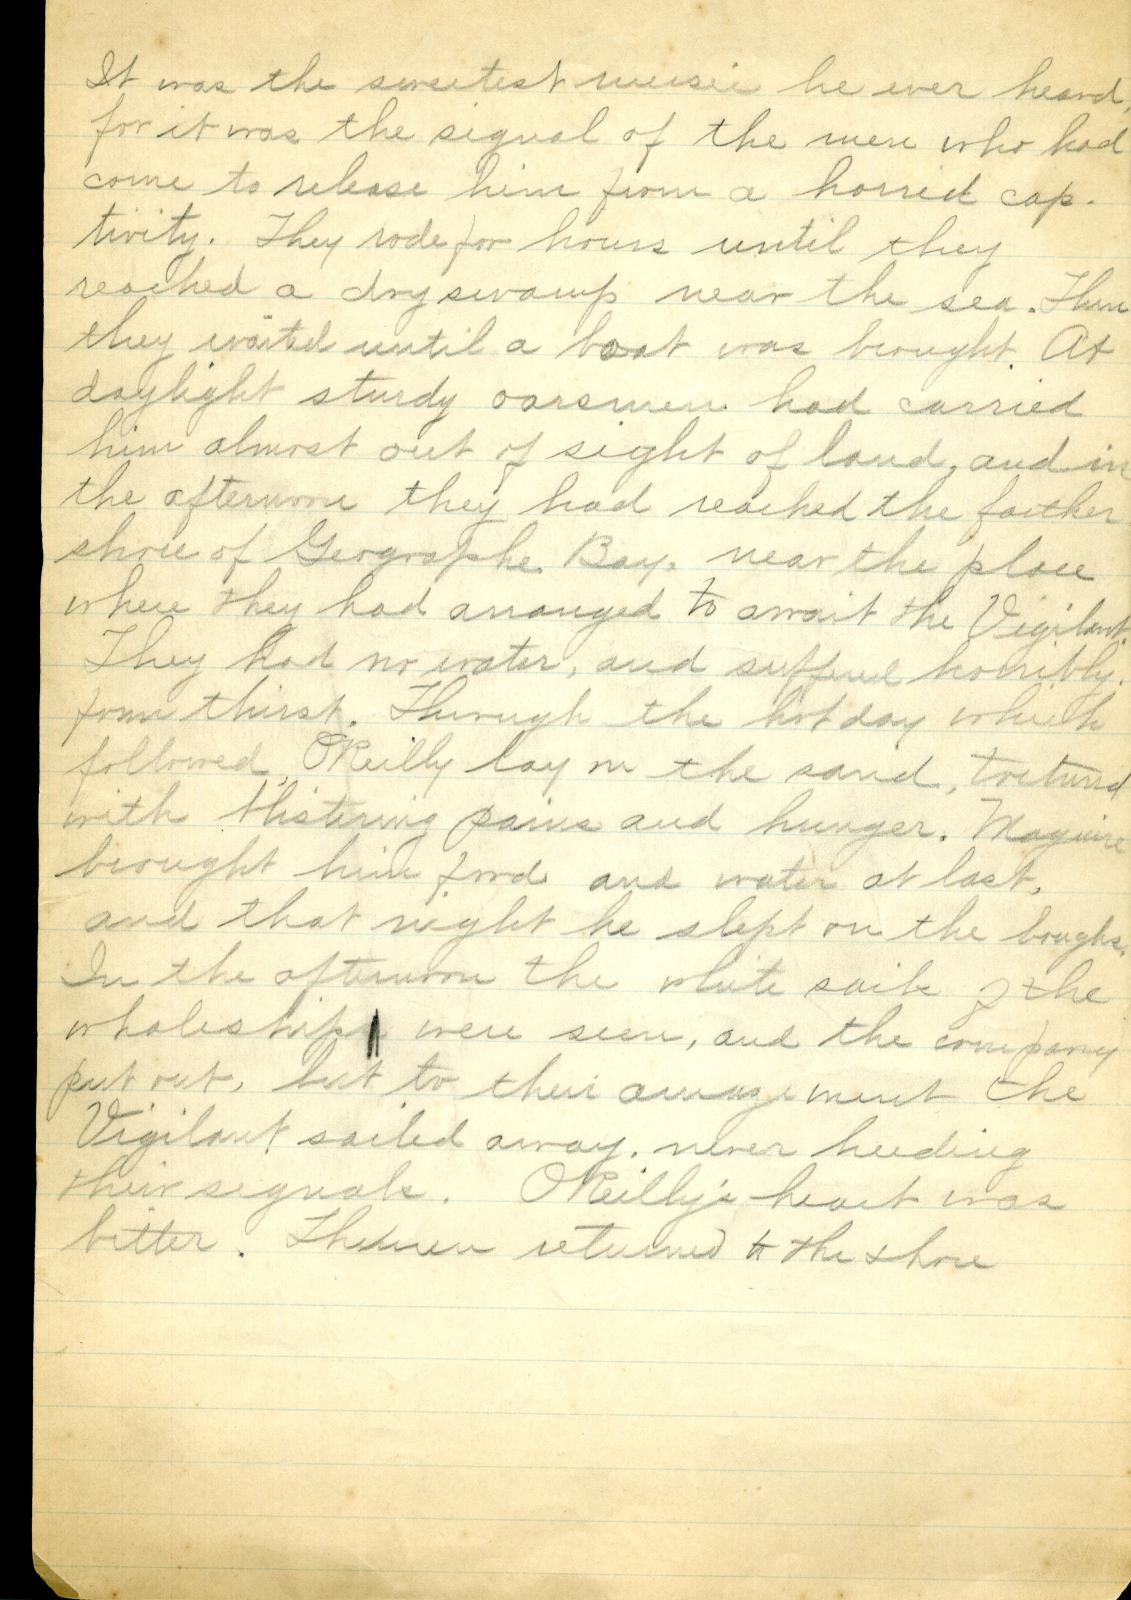 It was the sweetest music he ever heard,
for it was the signal of the men who had
come to release him from a horrid cap-
tivity. They rode for hours until they
reached a dry swamp near the sea. Then
they waited until a boat was brought. At
daylight sturdy oarsmen had carried
him almost out of sight of land, and in
the afternoon they had reached the farther
shore of Geographe Bay, near the place
where they had arranged to await the Vigilant.
They had no water, and suffered horribly
from thirst. Through the hot day which
followed, O'Reilly lay on the sand, tortured
with blistering pains and hunger. Maguire
brought him food and water at last,
and that night he slept on the boughs.
In the afternoon the white sails of the
whaleship were seen, and the company
put out, but to their amazement the
Vigilant sailed away, never heeding
their signals. O'Reilly's heart was
bitter. The men returned to the shore